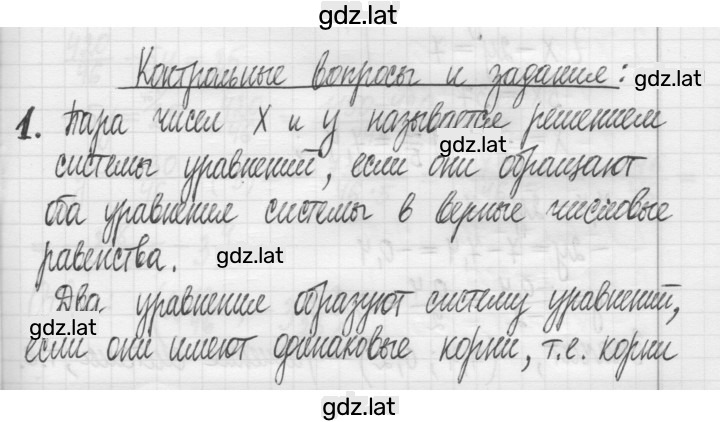 gdz.lat
Контрольные вопросы и задания:
gdz.lat
1. Пара чисел x и y называется решением
gdz.lat
системы уравнений, если они обращают
оба уравнения системы в верные числовые
равенства.
gdz.lat
Два уравнения образуют систему уравнений,
gdz.lat
если они имеют одинаковые корни, т.е. корни
gdz.lat